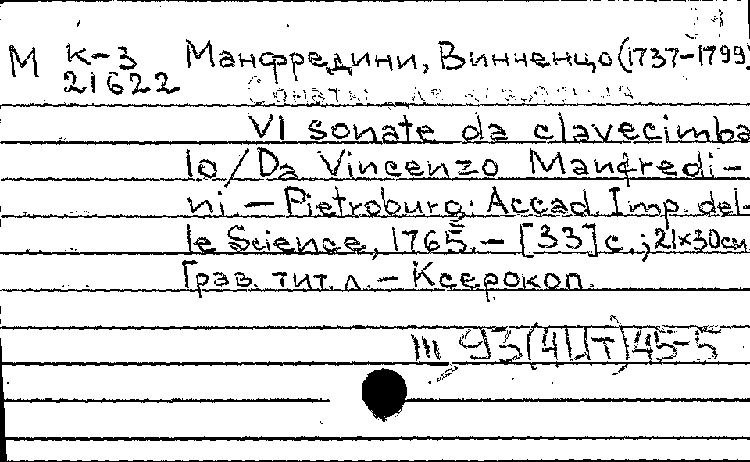 М К-3 Манфредини, Винченцо (1737-1799)
21622
Сонаты
VI sonate da clavecimba
lo / Da Vincenzo Manfredi-
ni. - Pietroburg: Accad. Imp. del-
le Science, 1765. - [33] с.; 21×30см.
Грав. тит. л. - Ксерокоп.
Ш 93(4ИТ)45-5